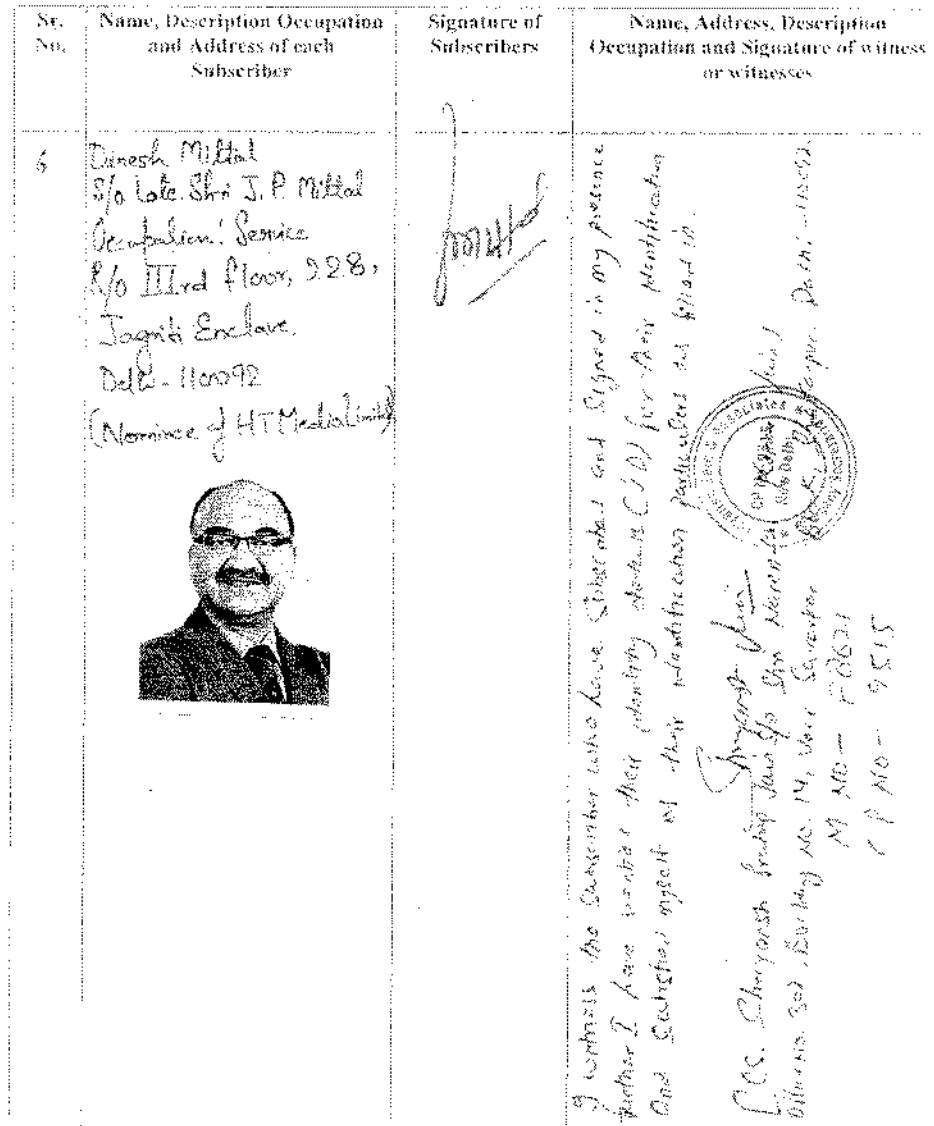 Sr. No.
Name, Description Occupation and Address of each Subscriber
Signature of Subscribers
Name, Address, Description Occupation and Signature of witness or witnesses
6
Dinesh Mittal
S/o Late. Shri J. P. Mittal
Occupation: Service
R/o IIIrd floor, 228,
Jagriti Enclave,
Delhi - 110092
(Nominee of HT Media Limited)
I witness the Subscriber who have Subscribed and Signed in my presence
further I have verified their identity details (ID) for their identification
and Satisfied myself of their identification particulars as filled in.
Jain S/o Shri
Office No. 302, Building No. 14, Veer Savarkar
M NO -
C P NO - 9515